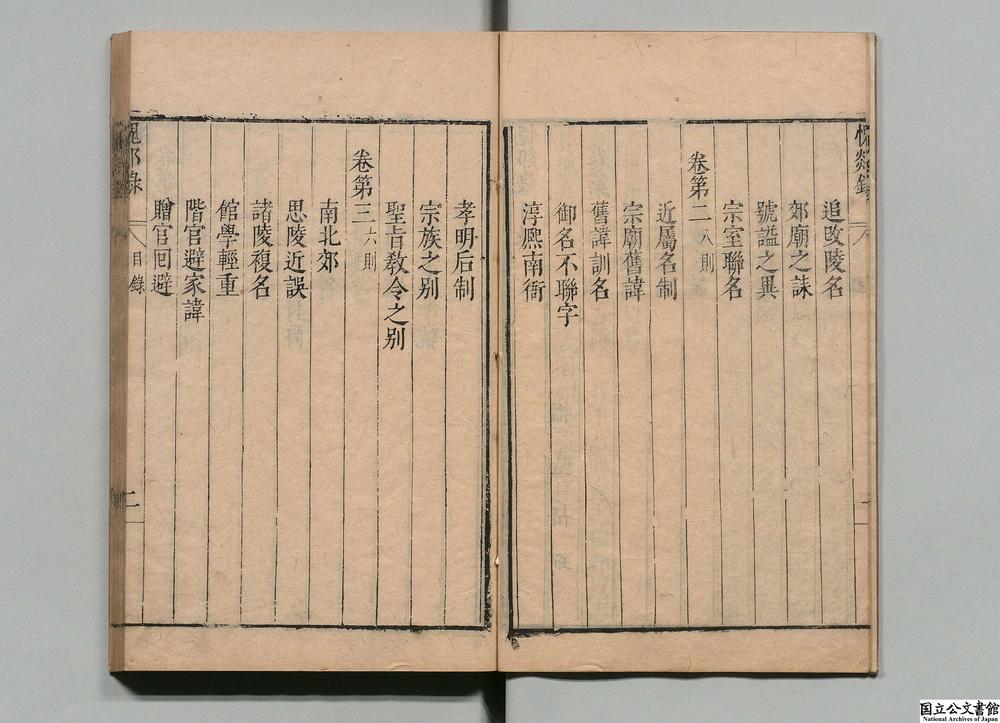 追改陵名
郊廟之誄
號謚之異
宗室聯名
卷第二 八則
近屬名制
宗廟舊諱
舊諱訓名
御名不聯字
淳熈南衙
孝明后制
宗族之别
聖旨敎令之别
卷第三 六則
南北郊
思陵近誤
諸陵複名
館學輕重
階官避家諱
贈官回避
愧郯錄
目錄
二
国立公文書館
National Archives of Japan